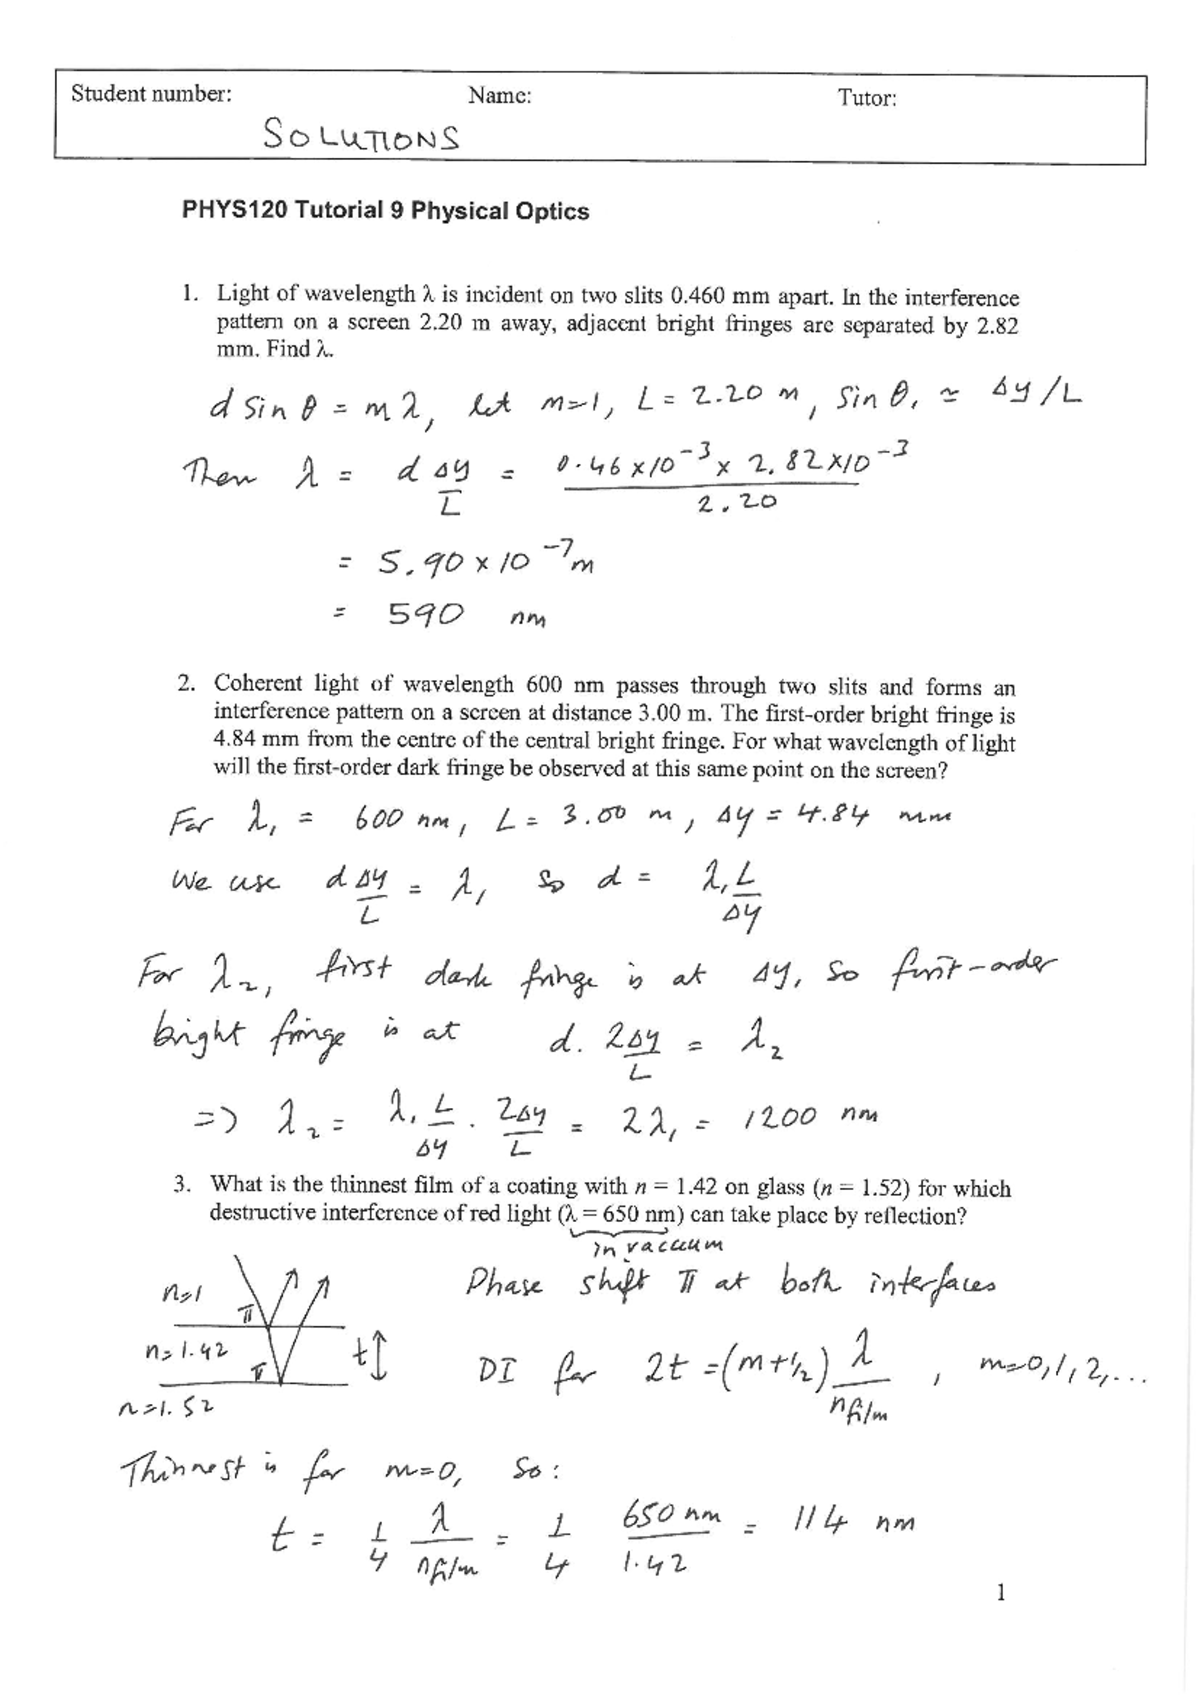 Student number: Name: Tutor:
SOLUTIONS
PHYS120 Tutorial 9 Physical Optics
1. Light of wavelength λ is incident on two slits 0.460 mm apart. In the interference
pattern on a screen 2.20 m away, adjacent bright fringes are separated by 2.82
mm. Find λ.
d sin θ = mλ, let m=1, L = 2.20 m, sin θ₁ ≃ Δy/L
Then λ = d Δy/L = 0.46 x10⁻³ x 2.82 x10⁻³ / 2.20
= 5.90 x 10⁻⁷ m
= 590 nm
2. Coherent light of wavelength 600 nm passes through two slits and forms an
interference pattern on a screen at distance 3.00 m. The first-order bright fringe is
4.84 mm from the centre of the central bright fringe. For what wavelength of light
will the first-order dark fringe be observed at this same point on the screen?
For λ₁ = 600 nm, L = 3.00 m, Δy = 4.84 mm
We use d Δy/L = λ₁ so d = λ₁L/Δy
For λ₂, first dark fringe is at Δy, so first-order
bright fringe is at d. 2Δy/L = λ₂
=> λ₂ = λ₁ L/Δy . 2Δy/L = 2λ₁ = 1200 nm
3. What is the thinnest film of a coating with n = 1.42 on glass (n = 1.52) for which
destructive interference of red light (λ = 650 nm) can take place by reflection?
in vacuum
n=1 π Phase shift π at both interfaces
n=1.42 π t DI for 2t = (m+½) λ/nfilm , m=0,1,2,...
n=1.52
Thinnest is for m=0, so:
t = 1/4 λ/nfilm = 1/4 650 nm/1.42 = 114 nm
1